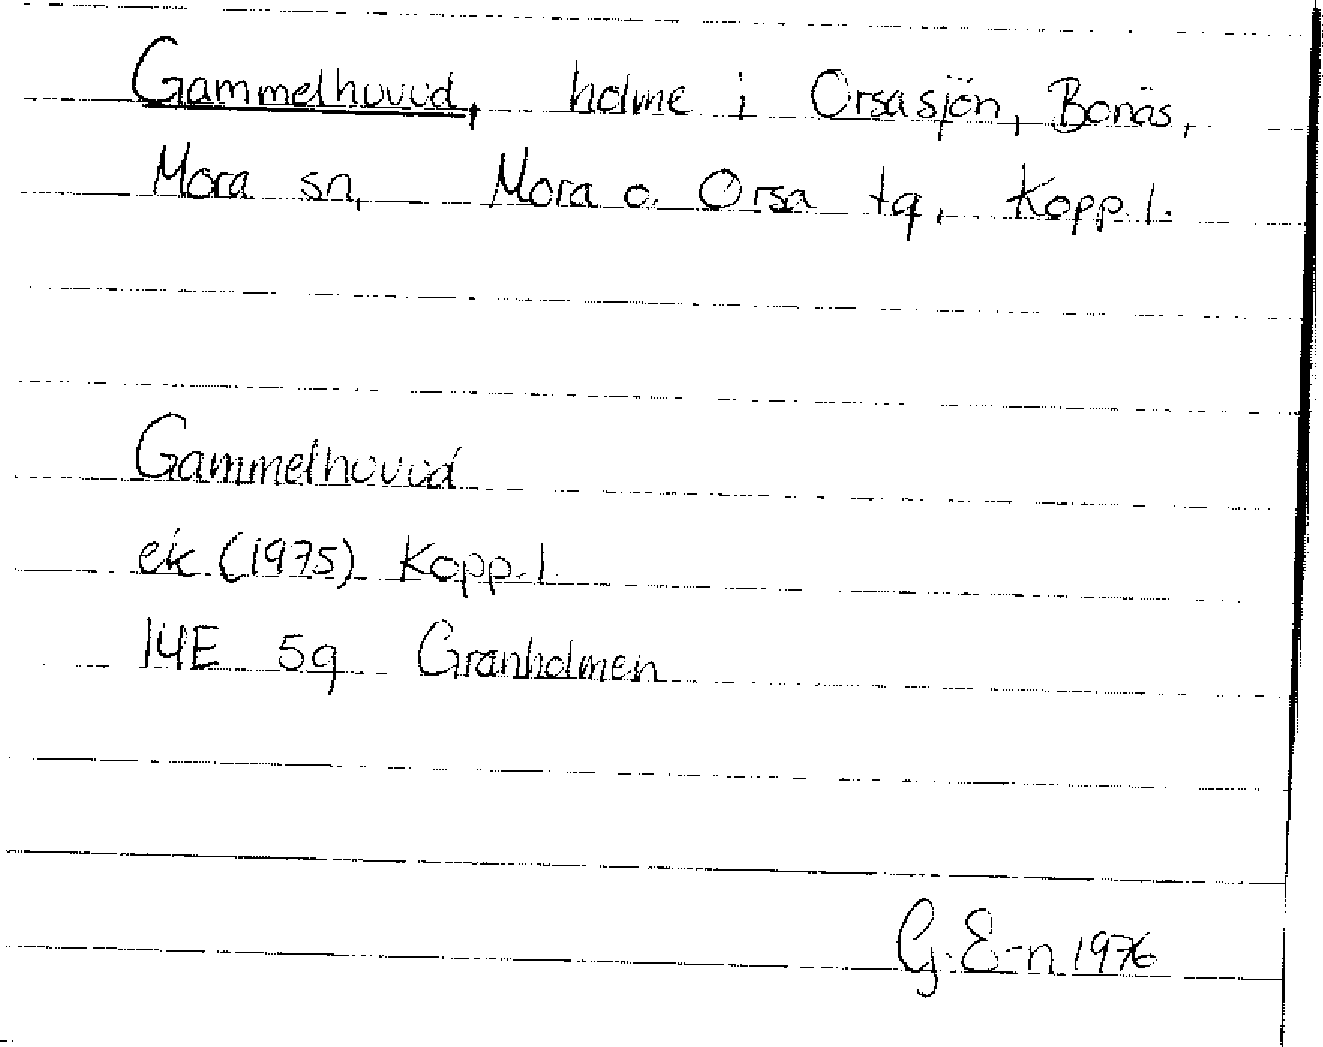 Gammelhuvud, holme i Orsasjön, Bonäs,
Mora sn, Mora o. Orsa tg, Kopp. l.
Gammelhuvud
ek (1975) Kopp. l.
14E 5g Granholmen
G. E-n 1976